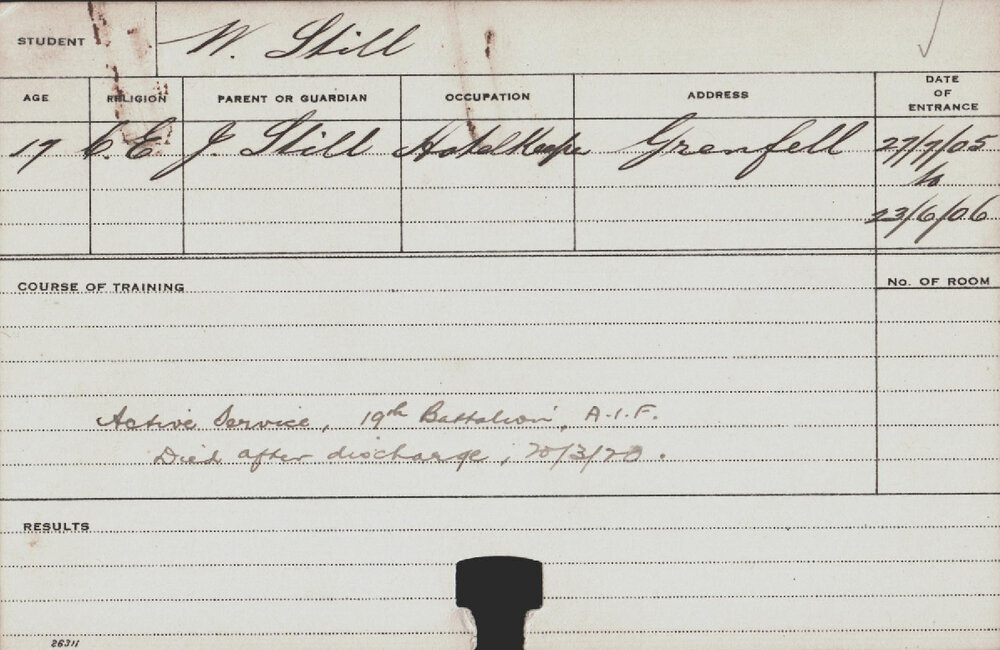 STUDENT W. Still
AGE RELIGION PARENT OR GUARDIAN OCCUPATION ADDRESS DATE OF ENTRANCE
17 C.E J. Still Hotel Keeper Grenfell 27/7/05
to
23/6/06
COURSE OF TRAINING No. OF ROOM
Active Service, 19th Battalion, A.I.F.
Died after discharge, 20/3/20.
RESULTS
26311